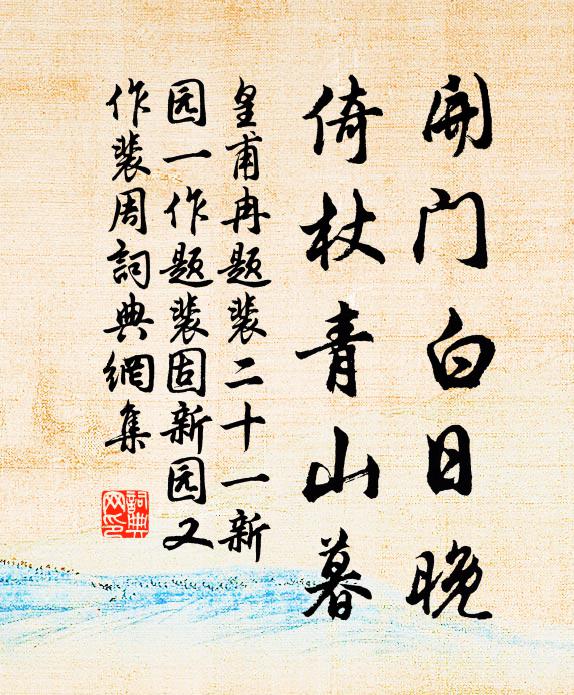 開门白日晚
倚杖青山暮
皇甫冉题裴二十一新
园一作题裴固新园又
作裴周詞典網集
詞典
网印